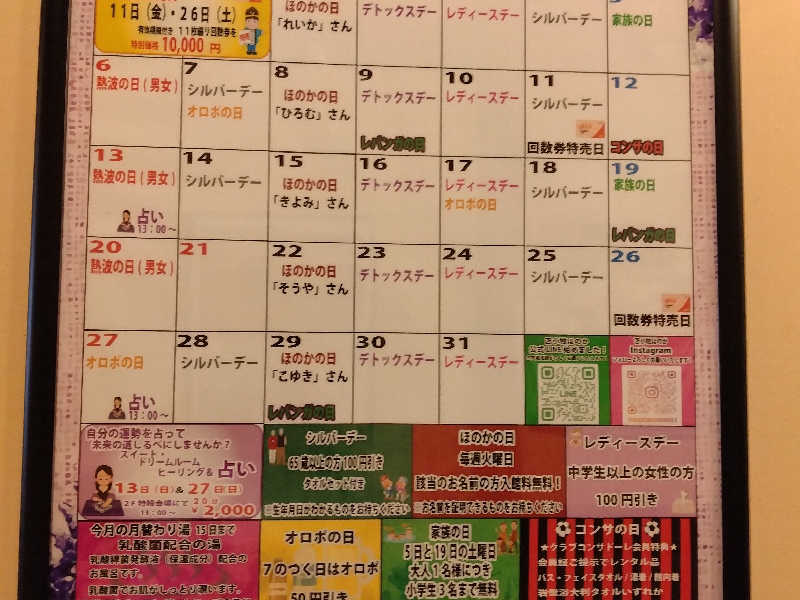 11日(金)・26日(土)
有効期限付き 11枚綴り回数券を
特別価格 10,000 円
ほのかの日
「れいか」さん
デトックスデー
レディースデー
シルバーデー
家族の日
6
熱波の日(男女)
7
シルバーデー
オロポの日
8
ほのかの日
「ひろむ」さん
9
デトックスデー
レバンガの日
10
レディースデー
11
シルバーデー
回数券特売日
12
コンサの日
13
熱波の日(男女)
占い
13:00~
14
シルバーデー
15
ほのかの日
「きよみ」さん
16
デトックスデー
17
レディースデー
オロポの日
18
シルバーデー
19
家族の日
レバンガの日
20
熱波の日(男女)
21
22
ほのかの日
「そうや」さん
23
デトックスデー
24
レディースデー
25
シルバーデー
26
回数券特売日
27
オロポの日
占い
13:00~
28
シルバーデー
29
ほのかの日
「こゆき」さん
レバンガの日
30
デトックスデー
31
レディースデー
苫小牧ほのか
公式LINE始めました!
LINE
苫小牧ほのか
Instagram
自分の運勢を占って
未来の道しるべにしませんか?
スイート・
ドリームルーム
ヒーリング& 占い
13日(日)&27日(日)
2F特設会場にて
13:00~
20分
¥2,000
シルバーデー
65歳以上の方100円引き
タオルセット付き
※生年月日がわかるものをお持ちください
ほのかの日
毎週火曜日
該当のお名前の方入館料無料!
※お名前を証明できるものをお持ちください
レディースデー
中学生以上の女性の方
100円引き
今月の月替わり湯 15日まで
乳酸菌配合の湯
乳酸菌発酵液(保湿成分)配合の
お風呂です。
乳酸菌でお肌がしっとり潤います。
オロポの日
7のつく日はオロポ
50円引き
家族の日
5日と19日の土曜日
大人1名様につき
小学生3名まで無料
コンサの日
★クラブコンサドーレ会員特典★
会員証ご提示でレンタル品
バス・フェイスタオル/湯着/館内着
岩盤浴大判タオルいずれか